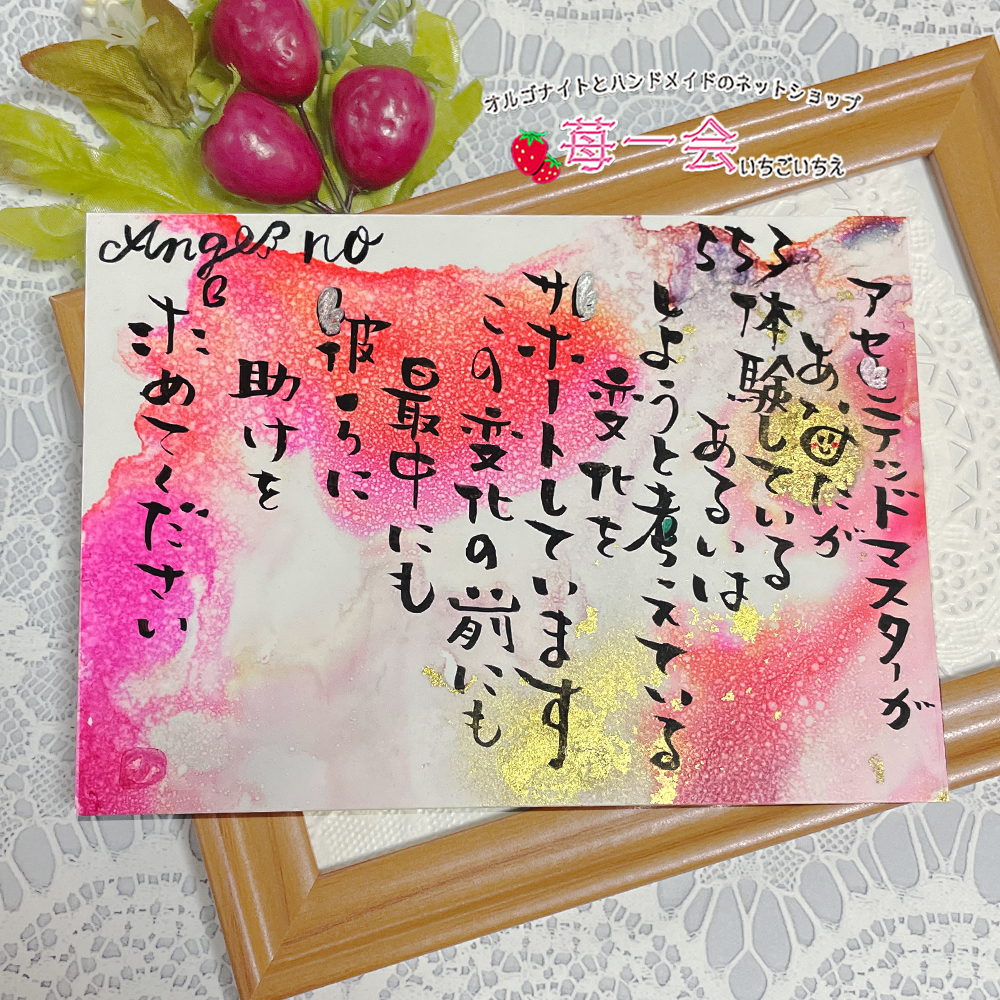 オルゴナイトとハンドメイドのネットショップ
苺一会
いちごいちえ
Angel no
553
アセンデッドマスターが
あなたが
体験している
あるいは
しようと考えている
変化を
サポートしています
この変化の前にも
最中にも
彼らに
助けを
求めてください